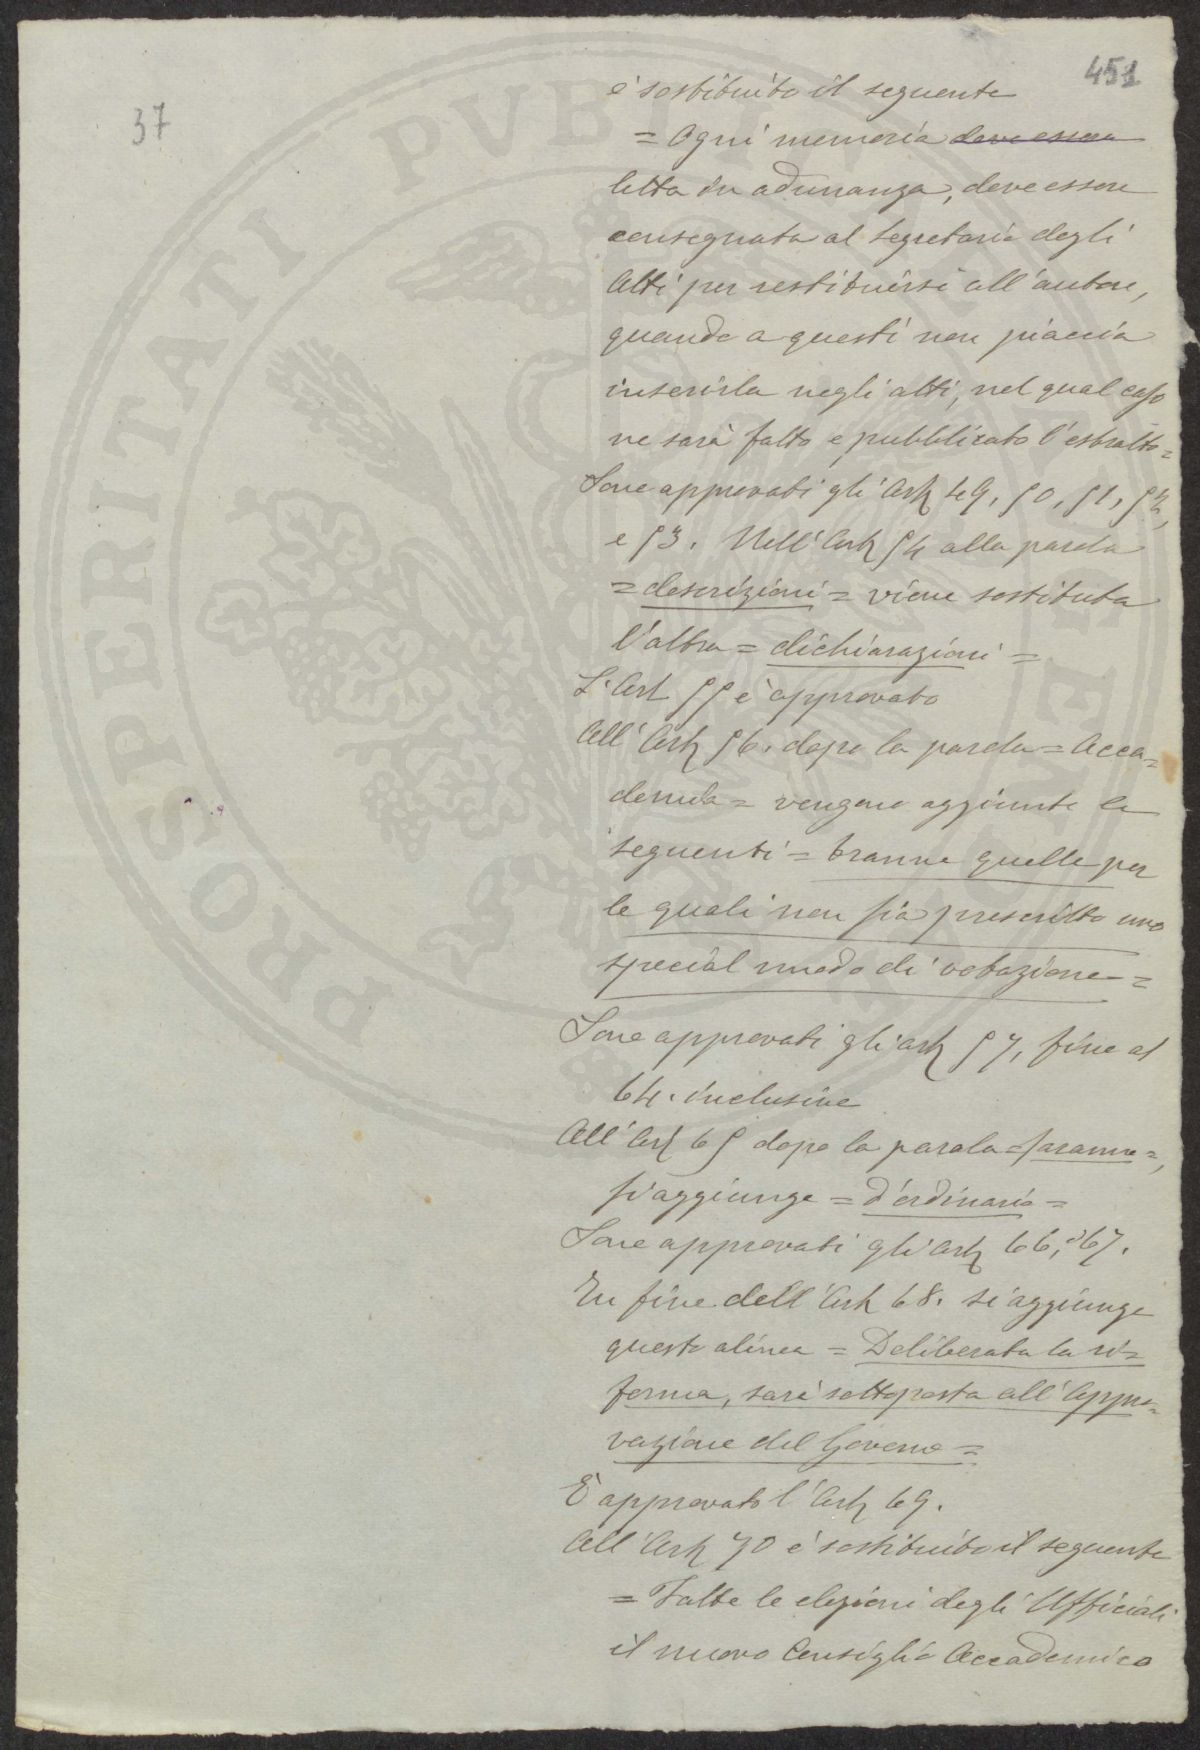 451
37
è sostituito il seguente
= Ogni memoria deve essere
letta in adunanza, deve essere
consegnata al Segretario degli
Atti per restituirsi all'autore,
quando a questi non piaccia
inserirla negli atti, nel qual caso
ne sarà fatto e pubblicato l'estratto=
Sono approvati gli Art. 49, 50, 51, 52,
e 53. Nell'Art. 54 alla parola
= descrizioni = viene sostituta
l'altra = dichiarazioni =
L'Art 55 è approvato
All'Art. 56. dopo la parola = Acca=
demia = vengono aggiunte le
seguenti = tranne quelle per
le quali non sia prescritto uno
special modo di votazione =
Sono approvati gli art. 57, fino al
64. inclusive
All'Art 65 dopo la parola = saranno =,
si aggiunge = d'ordinario =
Sono approvati gli Art. 66, e 67.
In fine dell'Art. 68. si aggiunge
questo alinea = Deliberata la ri=
forma, sarà sottoposta all'Appro=
vazione del Governo =
È approvato l'Art. 69.
All'Art. 70 è sostituito il seguente
= Fatte le elezioni degli Ufficiali
il nuovo Consiglio Accademico
PROSPERITATI PVBLICAE AVGENDAE